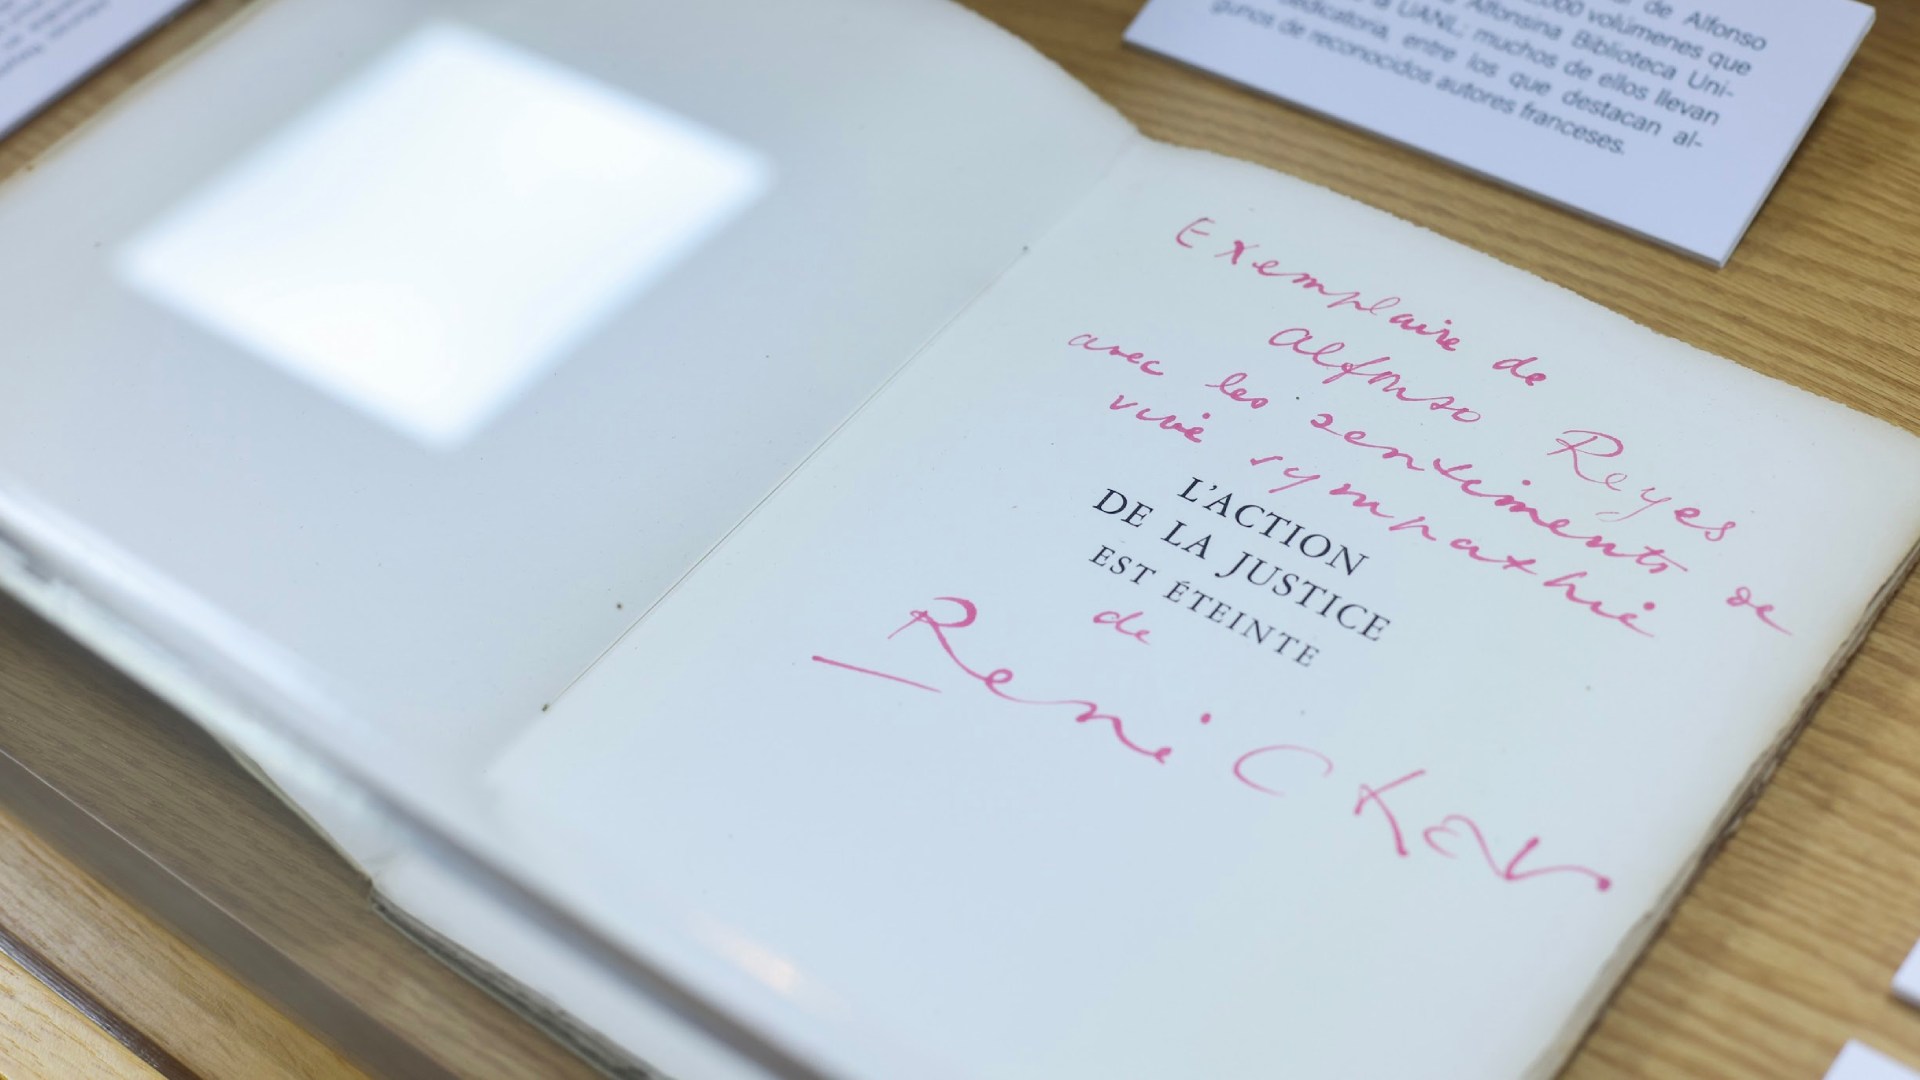 de Alfonso
volúmenes que
Alfonsina Biblioteca Uni-
la UANL; muchos de ellos llevan
dedicatoria, entre los que destacan al-
gunos de reconocidos autores franceses.
Exemplaire de
Alfonso Reyes
avec les sentiments de
vive sympathie
L'ACTION
DE LA JUSTICE
EST ÉTEINTE
de
René Char